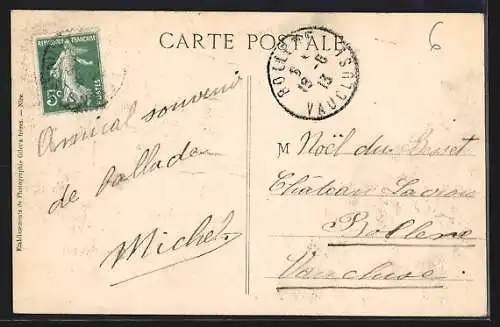 CARTE POSTALE
6
REPUBLIQUE FRANÇAISE
5c
POSTES
BOLLENE
VAUCLUSE
13
Etablissements de Photographie Giletta frères. — Nice.
Amical souvenir
de ballade
Michel
M Noël du
Château Lacroix
Bollene
Vaucluse